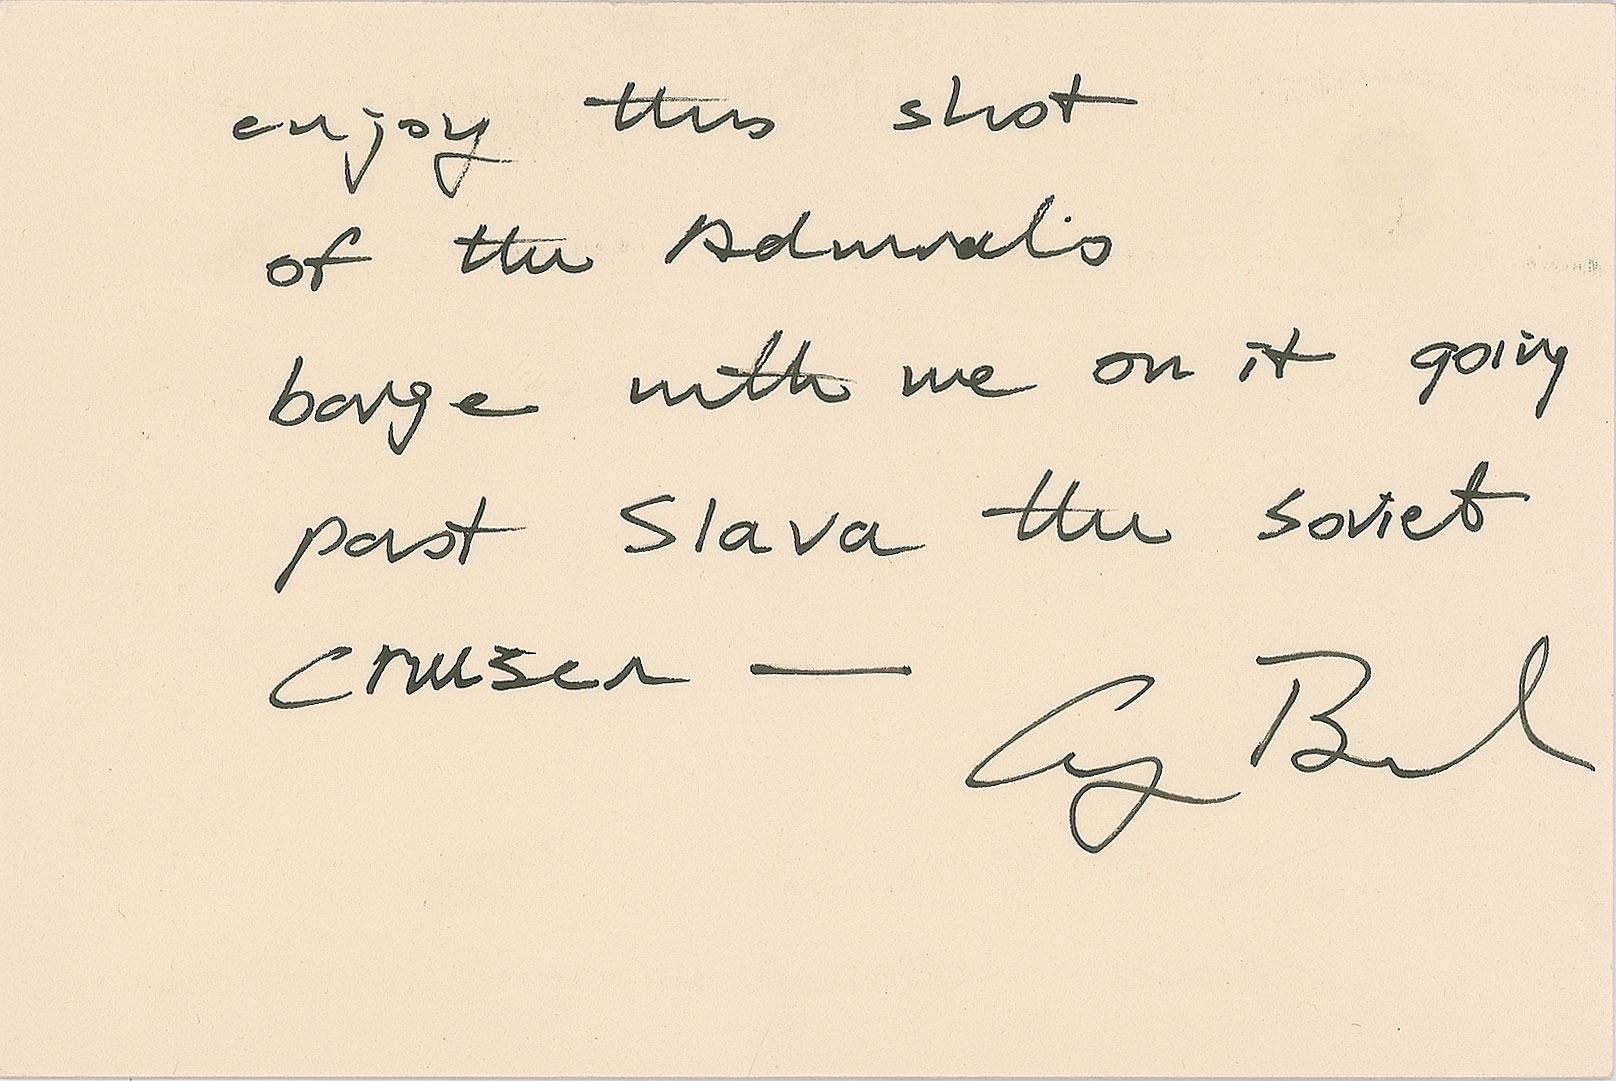 enjoy this shot
of the Admiral's
barge with me on it going
past Slava the soviet
cruiser —